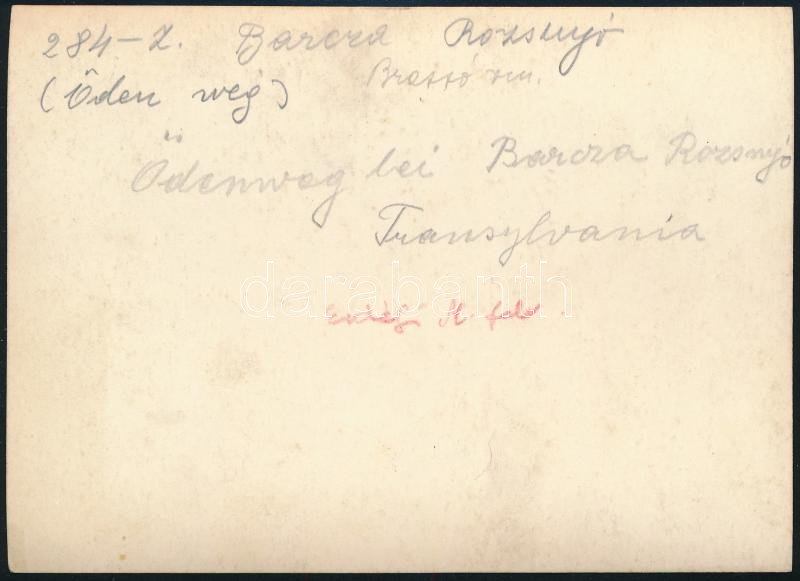 284-Z. Barcza Rozsnyó
(Öden weg) Brassó vm.
Ödenweg bei Barcza Rozsnyó
Transylvania
darabanth
Erdélyi M. felv.